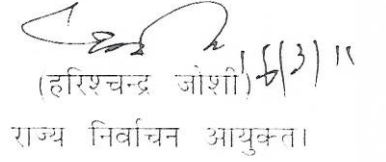 16/3/11
(हरिश्चन्द्र जोशी)
राज्य निर्वाचन आयुक्त।